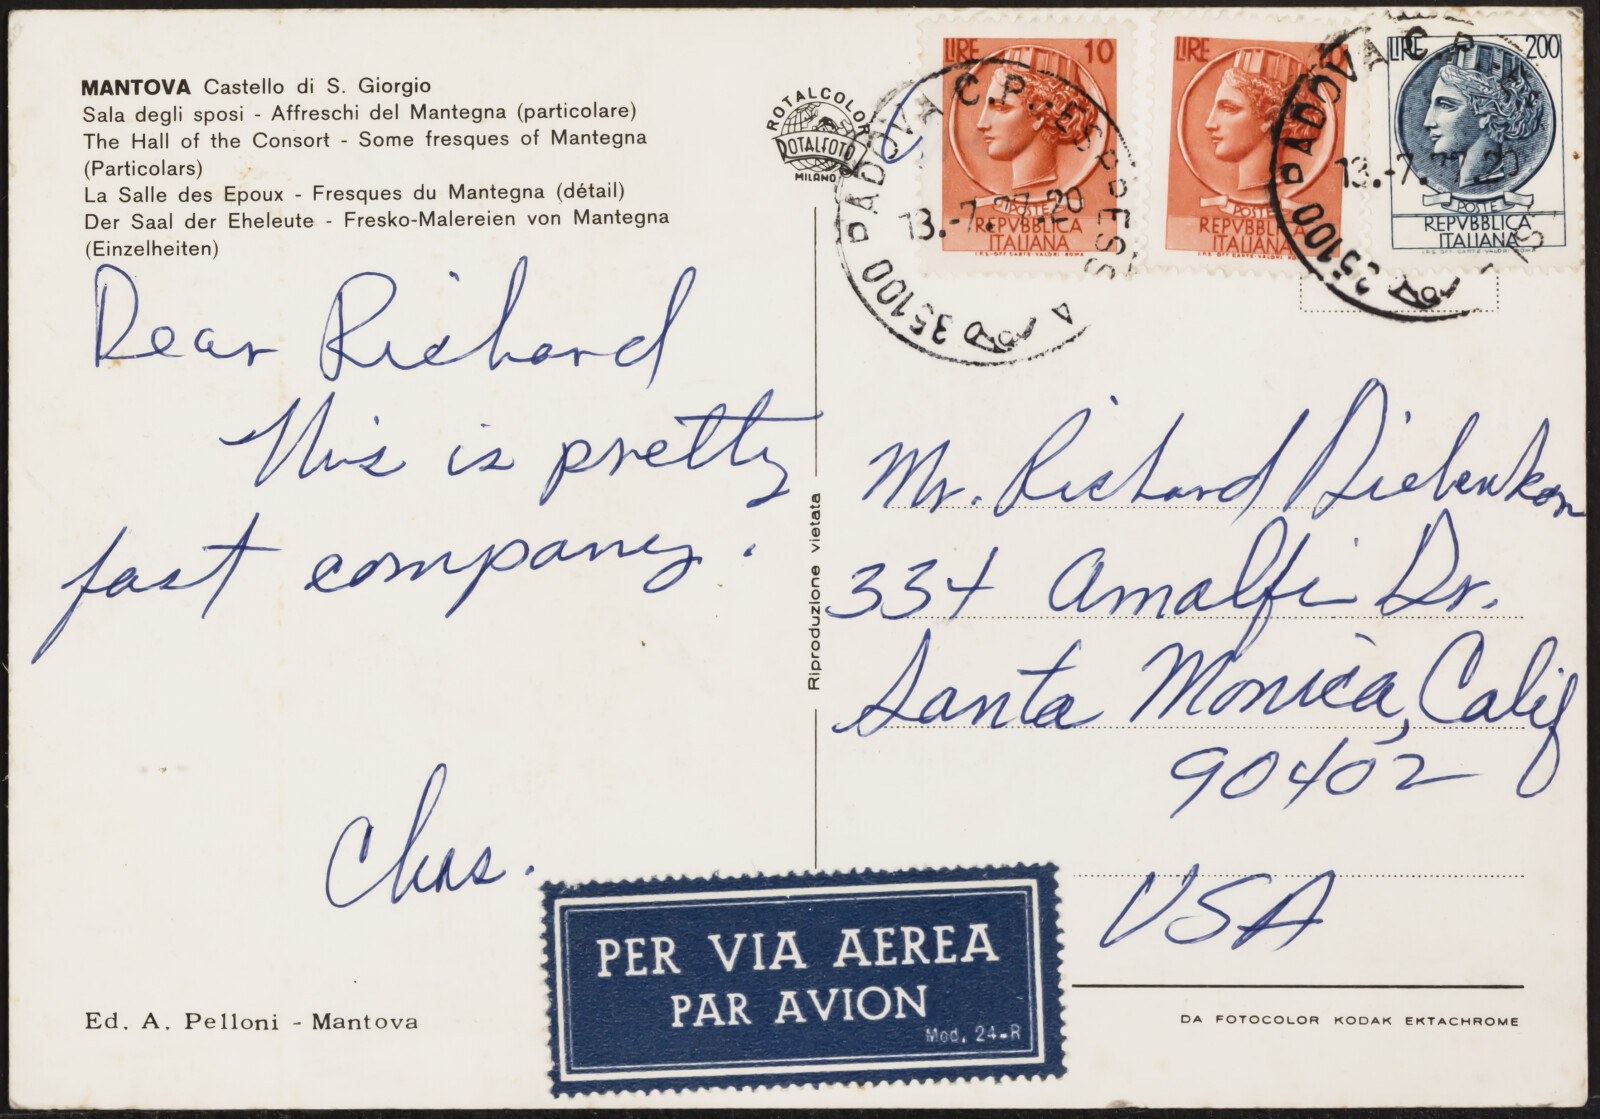 MANTOVA Castello di S. Giorgio
Sala degli sposi - Affreschi del Mantegna (particolare)
The Hall of the Consort - Some fresques of Mantegna
(Particolars)
La Salle des Epoux - Fresques du Mantegna (détail)
Der Saal der Eheleute - Fresko-Malereien von Mantegna
(Einzelheiten)
ROTALCOLOR
ROTALFOTO
MILANO
LIRE 10
POSTE
REPVBBLICA
ITALIANA
LIRE
POSTE
REPVBBLICA
ITALIANA
LIRE 200
POSTE
REPVBBLICA
ITALIANA
35100 PADOVA C.P. ESPRESS
13.-7.77.20
35100 PADOVA C.P.
13.-7.77.20
Dear Richard
This is pretty
fast company.
Chas.
Riproduzione vietata
Mr. Richard Diebenkorn
334 Amalfi Dr.
Santa Monica, Calif
90402
USA
PER VIA AEREA
PAR AVION
Mod. 24-R
Ed. A. Pelloni - Mantova
DA FOTOCOLOR KODAK EKTACHROME